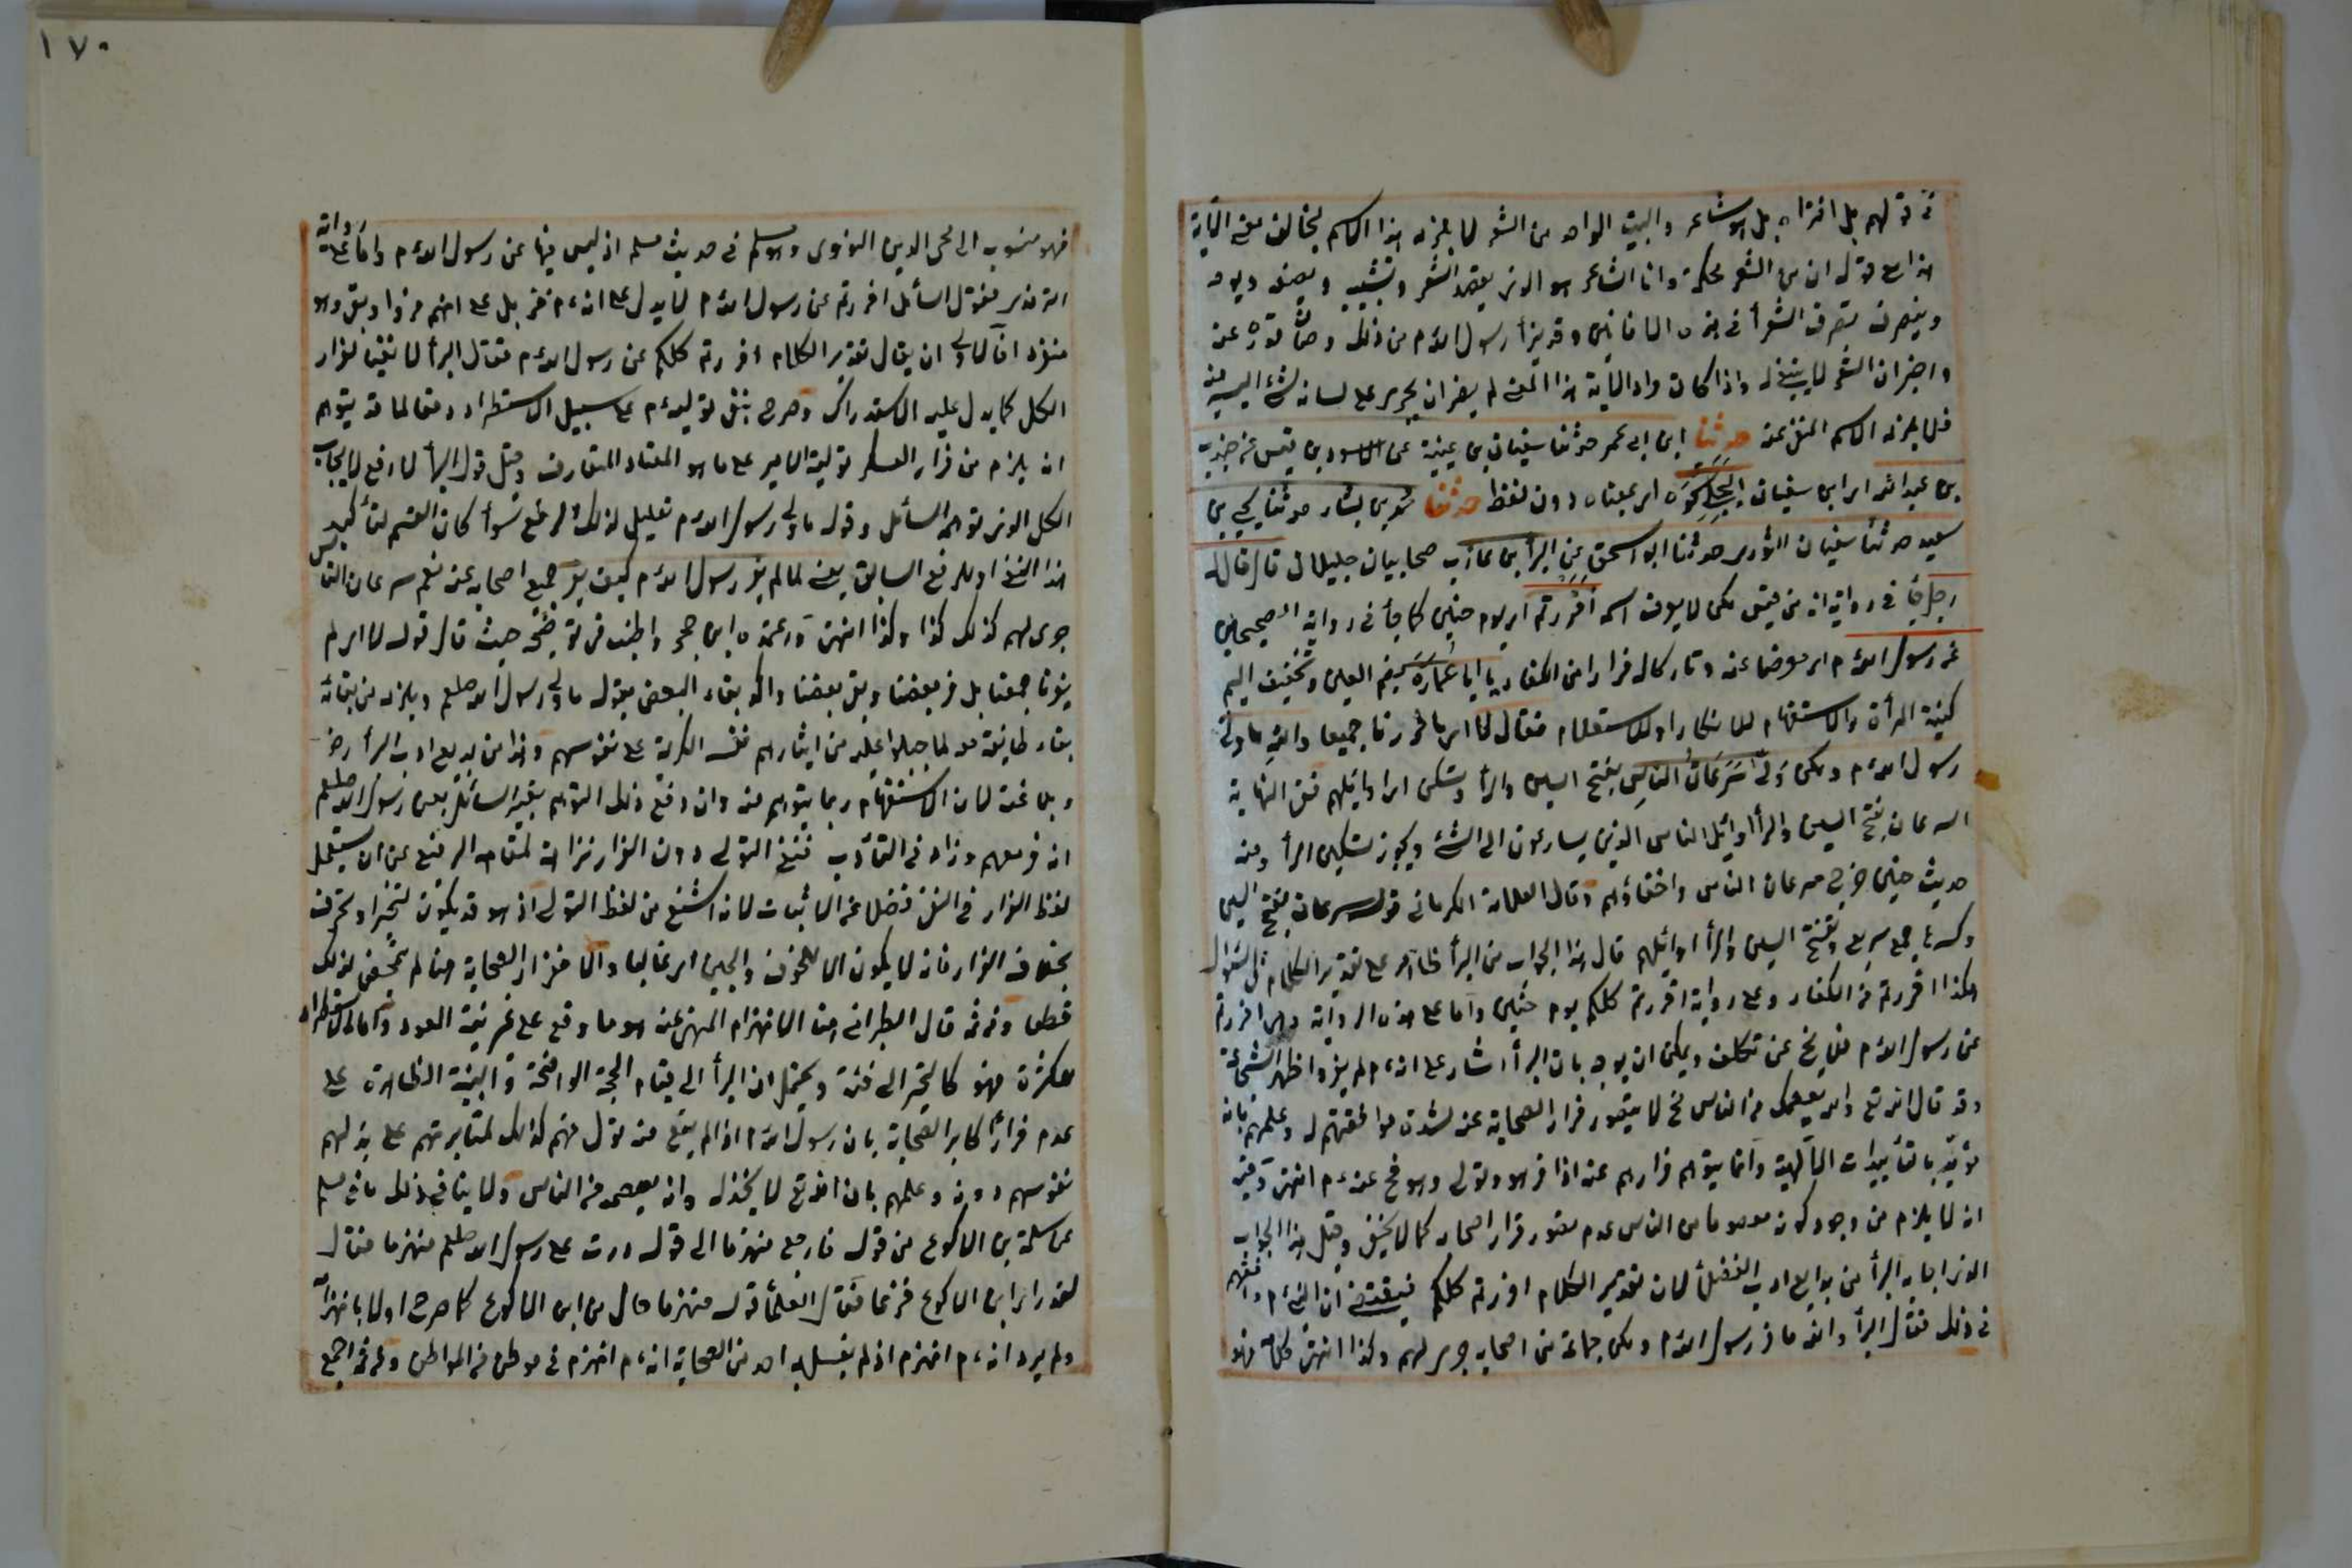 في قولهم بل افتراه بل هو شاعر والبيت الواحد من الشعر لا يلزمه هذا الاسم يخالف معنى الآية
هذا مع قوله ان من الشعر لحكمة وانما الشاعر هو الذي يقصد الشعر ويشبب ويصف ويمدح
ويتصرف تصرف الشعرأ في هذه الافانين وقد برأ رسول الله م من ذلك وصان قدره عنه
واخبر ان الشعر لا ينبغي له واذا كان مراد الآية هذا المعنى لم يضر ان يجري على لسانه الشئ اليسير منه
فلا يلزمه الاسم المنفي عنه حدثنا ابن ابي عمر حدثنا سفيان بن عيينة عن الاسود بن قيس عن جندب
بن عبد الله اي ابن سفيان البجلي نحوه اي بمعناه دون لفظ حدثنا محمد بن بشار حدثنا يحيى بن
سعيد حدثنا سفيان الثوري حدثنا ابو اسحق عن البرأ بن عازب صحابيان جليلان قال قال له
رجل جأ في رواية انه من قيس لكن لا يعرف اسمه أفررتم اي يوم حنين كما جأ في رواية الصحيحين
عن رسول الله م اي معرضا عنه وتاركا له فرارا من الكفار يا ابا عمارة بضم العين وتخفيف الميم
كنية البرأ والاستفهام للانكار او للاستعلام فقال لا اي ما فررنا جميعا والله ما ولى
رسول الله م ولكن ولى سرعان الناس بفتح السين والرأ وتسكن اي اوائلهم ففي النهاية
السرعان بفتح السين والرأ اوائل الناس الذين يسارعون الى الشئ ويجوز تسكين الرأ ومنه
حديث حنين خرج سرعان الناس واخفاؤهم وقال العلامة الكرماني قوله سرعان بفتح السين
وكسرها جمع سريع وبفتح السين والرأ اوائلهم قال هذا الجواب من البرأ ظاهر على تقدير الكلام في السؤال
هكذا افررتم من الكفار وعلى رواية افررتم كلكم يوم حنين واما على هذه الرواية وهي افررتم
عن رسول الله م فلا يخ عن تكلف ويمكن ان يوجه بان البرأ اشار على انه م لم يفر واظهر الشجاعة
وقد قال الله تع والله يعصمك من الناس فح لا يتصور فرار الصحابة عنه لشدة موافقتهم له وعلمهم بانه
مؤيد بالتأييدات الآلهية وانما يتوهم فرارهم عنه اذا فر هو وتولى وهو مح عنه م انتهى وفيه
انه لا يلزم من وجود كونه معصوما من الناس عدم تصور فرار اصحابه كما لا يخفى وقيل هذا الجواب
الذي اجابه البرأ من بدايع ادب الفضلأ لان تقدير الكلام افررتم كلكم فيقتضي ان النبي م وافقهم
في ذلك فقال البرأ والله ما فر رسول الله م ولكن جماعة من اصحابه جرى لهم وكذا انتهى كلامه فهو
١٧٠
فهو منسوب الى محي الدين النووي وهو مسلم في حديث مسلم اذ ليس فيها عن رسول الله م واما على رواية
الترمذي فقول السائل افررتم عن رسول الله م لا يدل على انه م فر بل على انهم فروا وبقي هو
منفردا فالاولى ان يقال تقدير الكلام افررتم كلكم عن رسول الله م فقال البرأ لا نفيا لفرار
الكل كما يدل عليه الاستدراك وصرح بنفي توليه م على سبيل الاستطراد دفعا لما قد يتوهم
انه يلزم من فرار العسكر تولية الامير على ما هو المعتاد المتعارف وقيل قول البرأ لا رفع لايجاب
الكل الذي توهمه السائل وقوله ما ولى رسول الله م تعليل لذلك الرفع سوأ كان القسم لتأكيد
هذا النفي او للرفع السابق يعنى لما لم يفر رسول الله م كيف يفر جميع اصحابه عنه نعم سرعان الناس
جرى لهم كذلك كذا وكذا انتهى وزعمه ابن حجر واطنب في توضيحه حيث قال قوله لا اي لم
يفرنا جميعنا بل فر بعضنا وبقي بعضنا واكد بقاء البعض بقوله ما ولى رسول الله صلعم ويلزم من بقائه
بقاء طائفة معه لما جبلوا عليه من ايثارهم نفسه الكريمة على نفوسهم وهذا من بديع ادب البرأ رض
وبلاغته لان الاستفهام ربما يتوهم منه وان دفع ذلك التوهم بقية السائل بعن رسول الله صلعم
انه فر معهم وزاد في التأدب فنفى التولي دون الفرار نزاهة لمقامه الرفيع عن ان يستعمل
لفظ الفرار في النفي فضلا عن الاثبات لانه اشنع من لفظ التولي اذ هو قد يكون لتحيز او تحرف
بخلاف الفرار فانه لا يكون الا للخوف والجبن اي غالبا والا ففرار الصحابة هنا لم يتمحض لذلك
قطعا ومن ثم قال الطبراني هنا الانهزام المنهي عنه هو ما وقع على غير نية العود واما الاستطراد
لكثرة فهو كالتحيز الى فئة ويحتمل ان البرأ الى قيام الحجة الواضحة والبينة الظاهرة على
عدم فرار اكابر الصحابة بان رسول الله م اذا لم يقع منه تول فهم كذلك لمثابرتهم على بذلهم
نفوسهم دونه وعلمهم بان الله تع لا يخذله وانه يعصمه من الناس ولا ينافي ذلك ما في مسلم
عن سلمة بن الاكوع من قوله فارجع منهزما الى قوله ومررت على رسول الله صلعم منهزما فقال
لقد رأى ابن الاكوع فزعا فقال العلمأ قوله منهزما حال من ابن الاكوع كما صرح اولا بانهزامه
ولم يرد انه م انهزم اذ لم يقل احد من الصحابة انه م انهزم في موطن من المواطن ومن ثم اجمع